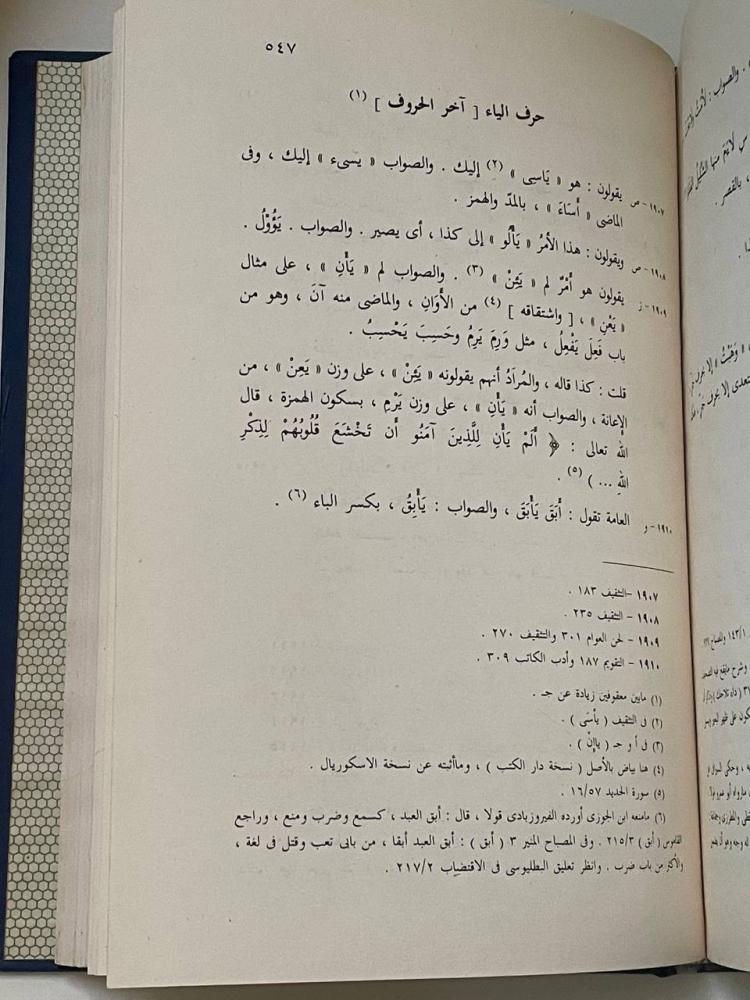 ٥٤٧
حرف الياء [ آخر الحروف ] (١)
١٩٠٧ – ص يقولون : هو « يَاسى » (٢) إليك . والصواب « يسىء » إليك ، وفى
الماضى « أَسَاءَ » ، بالمدّ والهمز .
١٩٠٨ – ص ويقولون : هذا الأمرُ « يَأْلُو » إلى كذا ، أى يصير . والصواب . يَؤُوْلُ .
١٩٠٩ – ز يقولون هو أَمْرٌ لم « يَئِنْ » (٣) . والصواب لم « يَأْنِ » ، على مثال
« يَعْنِ » ، [ واشتقاقه ] (٤) من الأَوَانِ ، والماضى منه آنَ ، وهو من
باب فَعِلَ يَفْعِلُ ، مثل وَرِمَ يَرِمُ وحَسِبَ يَحْسِبُ .
قلت : كذا قاله ، والمُرَادُ أنهم يقولونه « يَئِنْ » ، على وزن « يَعِنْ » ، من
الإعانة ، والصواب أنه « يَأْنِ » ، على وزن يَرْمِ ، بسكون الهمزة ، قال
الله تعالى : ﴿ أَلَمْ يَأْنِ لِلَّذِينَ آمَنُو أَن تَخْشَعَ قُلُوبُهُمْ لِذِكْرِ
اللهِ ... ) (٥) .
١٩١٠ – و العامة تقول : أَبَقَ يَأْبَقَ ، والصواب : يَأْبِقُ ، بكسر الباء (٦) .
١٩٠٧ – التثقيف ١٨٣ .
١٩٠٨ – التثقيف ٢٣٥ .
١٩٠٩ – لحن العوام ٣٠١ والتثقيف ٢٧٠ .
١٩١٠ – التقويم ١٨٧ وأدب الكاتب ٣٠٩ .
(١) مابين معقوفين زيادة عن جـ .
(٢) فى التثقيف ( يأسَى ) .
(٣) فى أ و جـ ( ياإنْ ) .
(٤) هنا بياض بالأصل ( نسخة دار الكتب ) ، وماأثبته عن نسخة الاسكوريال .
(٥) سورة الحديد ١٦/٥٧ .
(٦) مامنعه ابن الجوزى أورده الفيروزبادى قولا ، قال : أبق العبد ، كسمع وضرب ومنع ، وراجع
القاموس ( أبق ) ٢١٥/٣ . وفى المصباح المنير ٣ ( أبق ) : أبق العبد أبقا ، من بابى تعب وقتل فى لغة ،
والأكثر من باب ضرب . وانظر تعليق البطليوسى فى الاقتضاب ٢١٧/٢ .